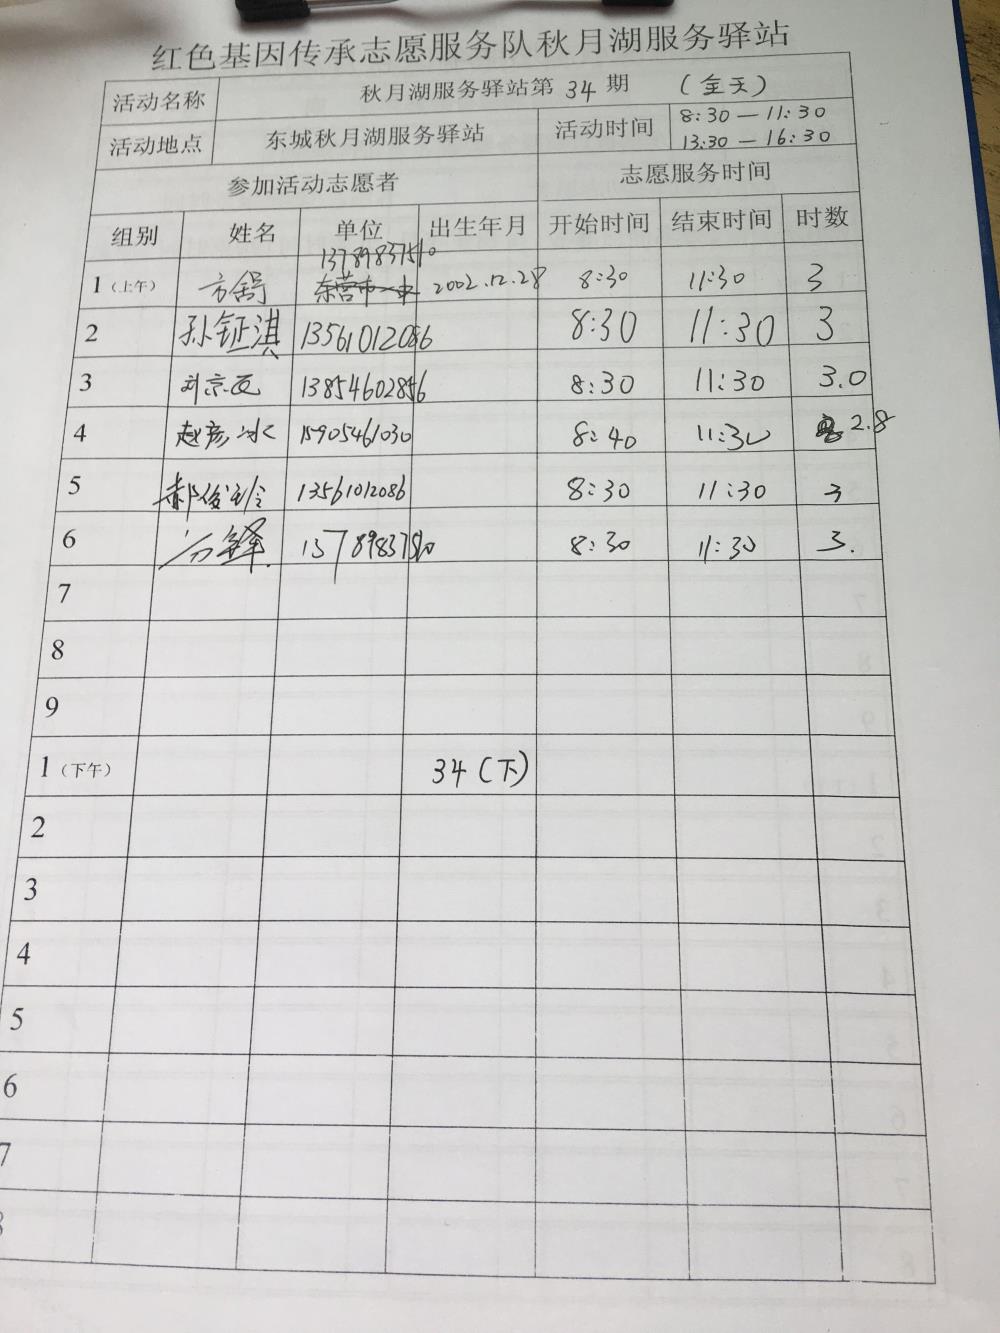 红色基因传承志愿服务队秋月湖服务驿站
活动名称 秋月湖服务驿站第 34 期 (全天)
活动地点 东城秋月湖服务驿站 活动时间 8:30 — 11:30
13:30 — 16:30
参加活动志愿者 志愿服务时间
组别 姓名 单位 出生年月 开始时间 结束时间 时数
13789837510
1 (上午) 方舒 东营市一中 2002.12.28 8:30 11:30 3
2 孙钲淇 13561012086 8:30 11:30 3
3 刘京 13854602856 8:30 11:30 3.0
4 赵彦冰 15905461030 8:40 11:30 2.8
5 郝俊玲 13561012086 8:30 11:30 3
6 方锋 13789837510 8:30 11:30 3.
7
8
9
1 (下午) 34 (下)
2
3
4
5
6
7
8